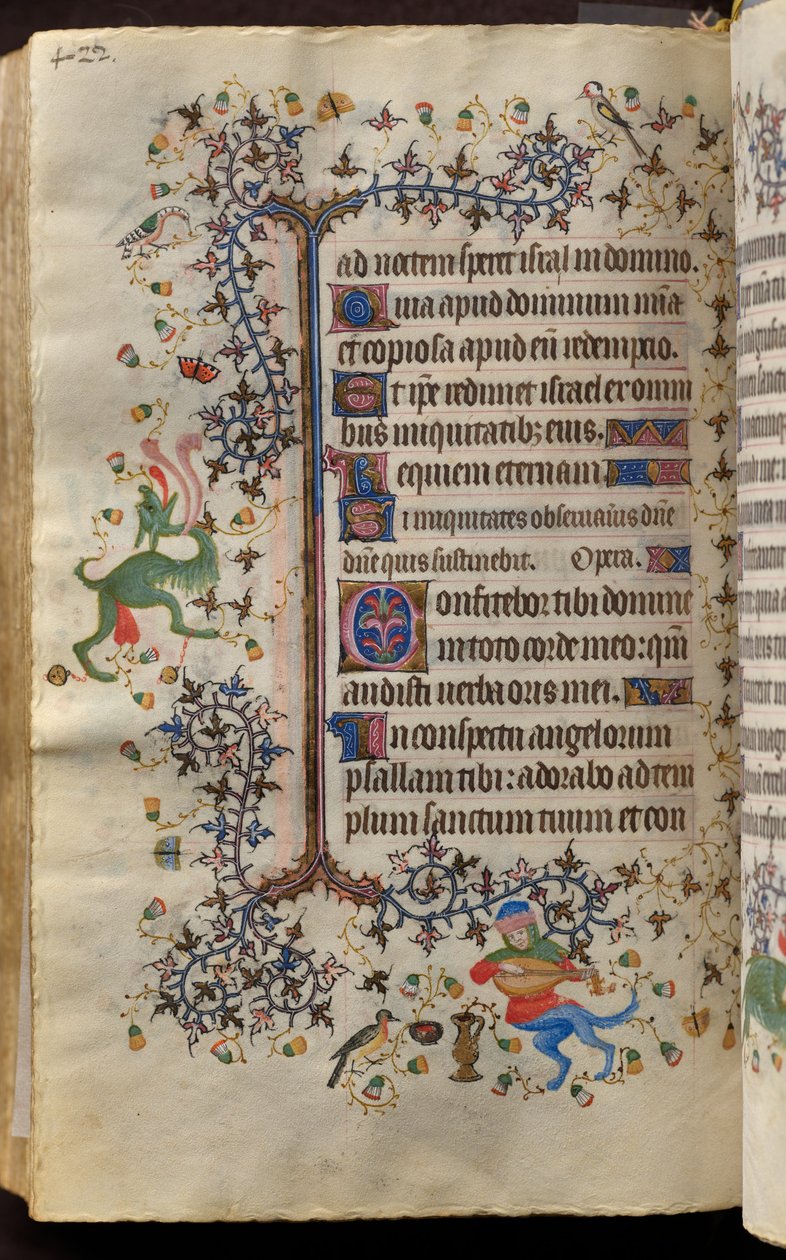 4-22.
ad noctem speret isral in domino.
Quia apud dominum mia
et copiosa apud eu redempcio.
Et ipe redimet israel ex omni
bus iniquitatibz eius.
Requiem eternam.
Si iniquitates obseruauis dne
dne quis sustinebit. Opera.
Confitebor tibi domine
in toto corde meo: qm
audisti uerba oris mei.
In conspectu angelorum
psallam tibi: adorabo ad tem
plum sanctum tuum et con